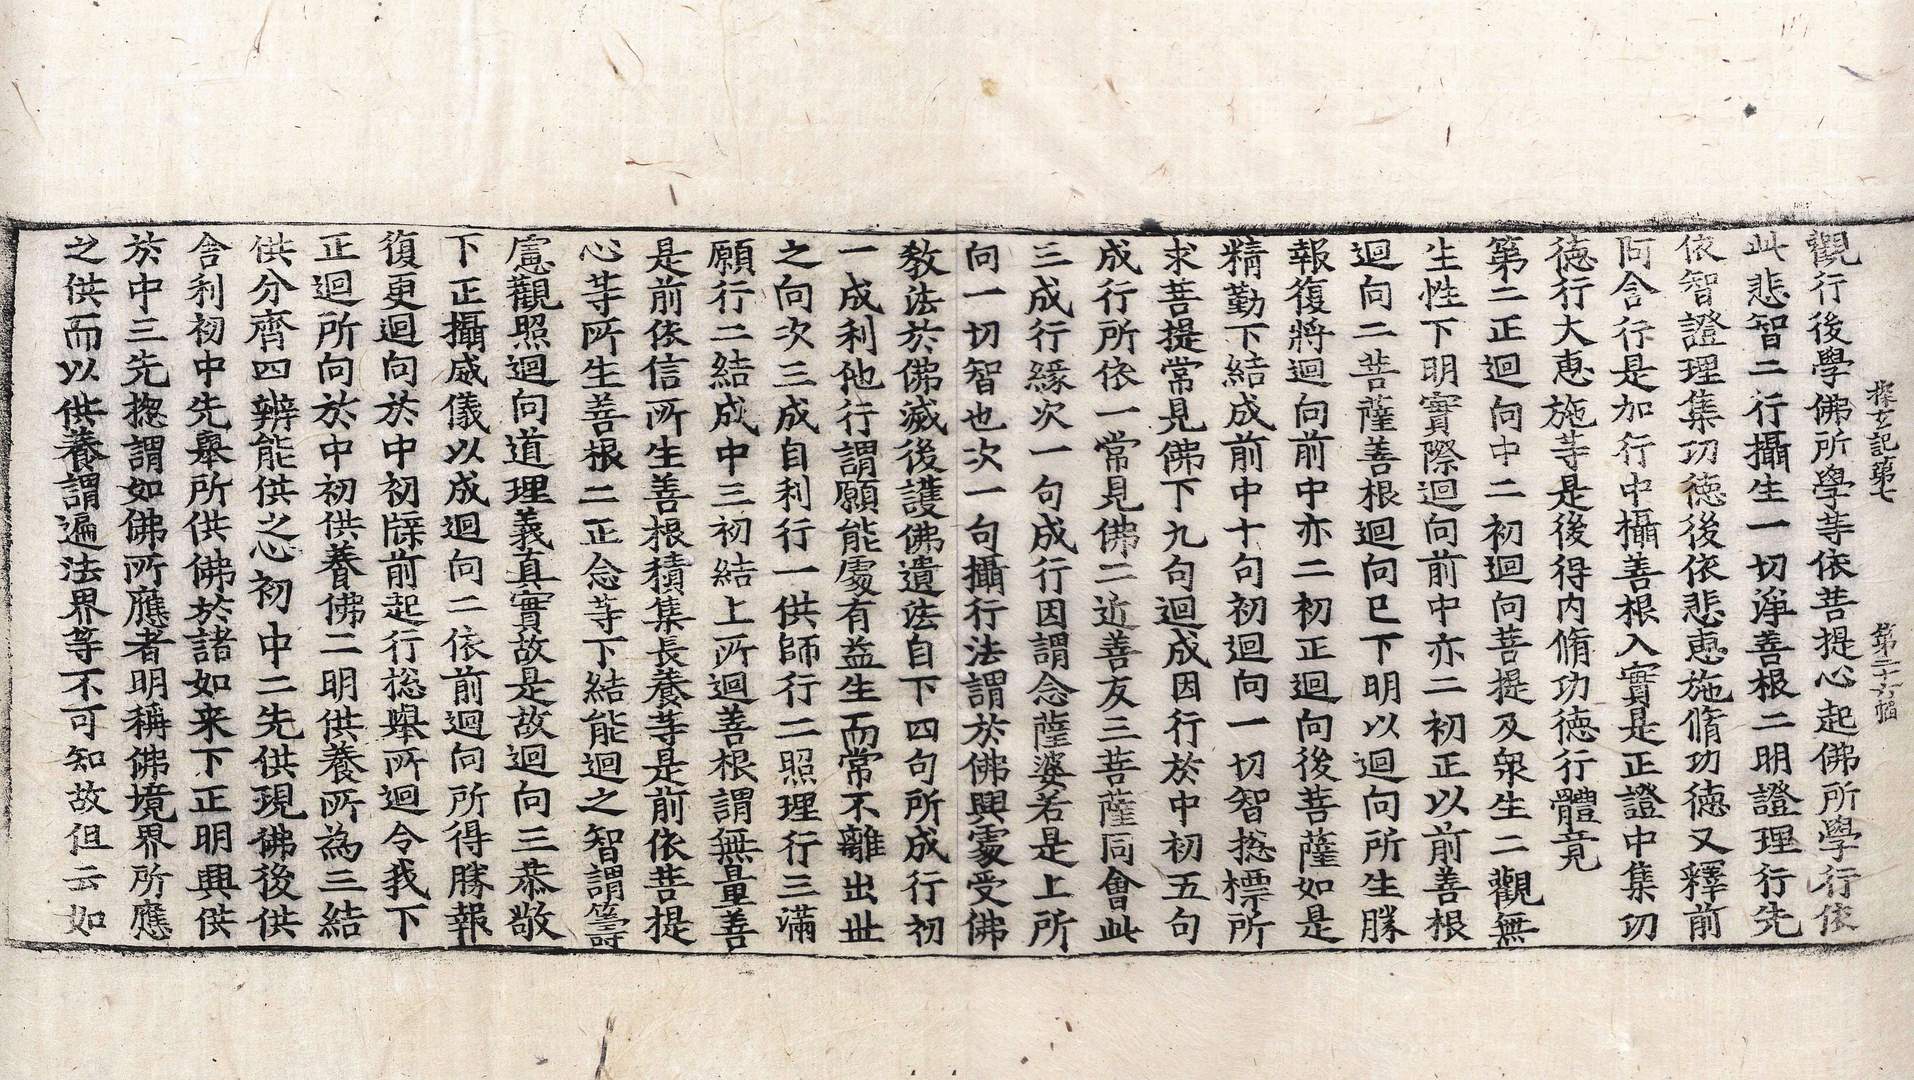 探玄記第七　第二十六幅
觀行後學佛所學等依菩提心起佛所學行依
此悲智二行攝生一切淨善根二明證理行先
依智證理集功德後依悲惠施脩功德又釋前
阿含行是加行中攝善根入實是正證中集功
德行大惠施等是後得內脩功德行體竟
第二正迴向中二初迴向菩提及衆生二觀無
生性下明實際迴向前中亦二初正以前善根
迴向二菩薩善根迴向已下明以迴向所生勝
報復將迴向前中亦二初正迴向後菩薩如是
精勤下結成前中十句初迴向一切智揔標所
求菩提常見佛下九句迴成因行於中初五句
成行所依一常見佛二近善友三菩薩同會此
三成行緣次一句成行因謂念薩婆若是上所
向一切智也次一句攝行法謂於佛興處受佛
教法於佛滅後護佛遺法自下四句所成行初
一成利他行謂願能處有益生而常不離出世
之向次三成自利行一供師行二照理行三滿
願行二結成中三初結上所迴善根謂無量善
是前依信所生善根積集長養等是前依菩提
心等所生善根二正念等下結能迴之智謂籌
慮觀照迴向道理義真實故是故迴向三恭敬
下正攝威儀以成迴向二依前迴向所得勝報
復更迴向於中初牒前起行捴舉所迴令我下
正迴所向於中初供養佛二明供養所為三結
供分齊四辨能供之心初中二先供現佛後供
舍利初中先舉所供佛於諸如来下正明興供
於中三先揔謂如佛所應者明稱佛境界所應
之供而以供養謂遍法界等不可知故但云如